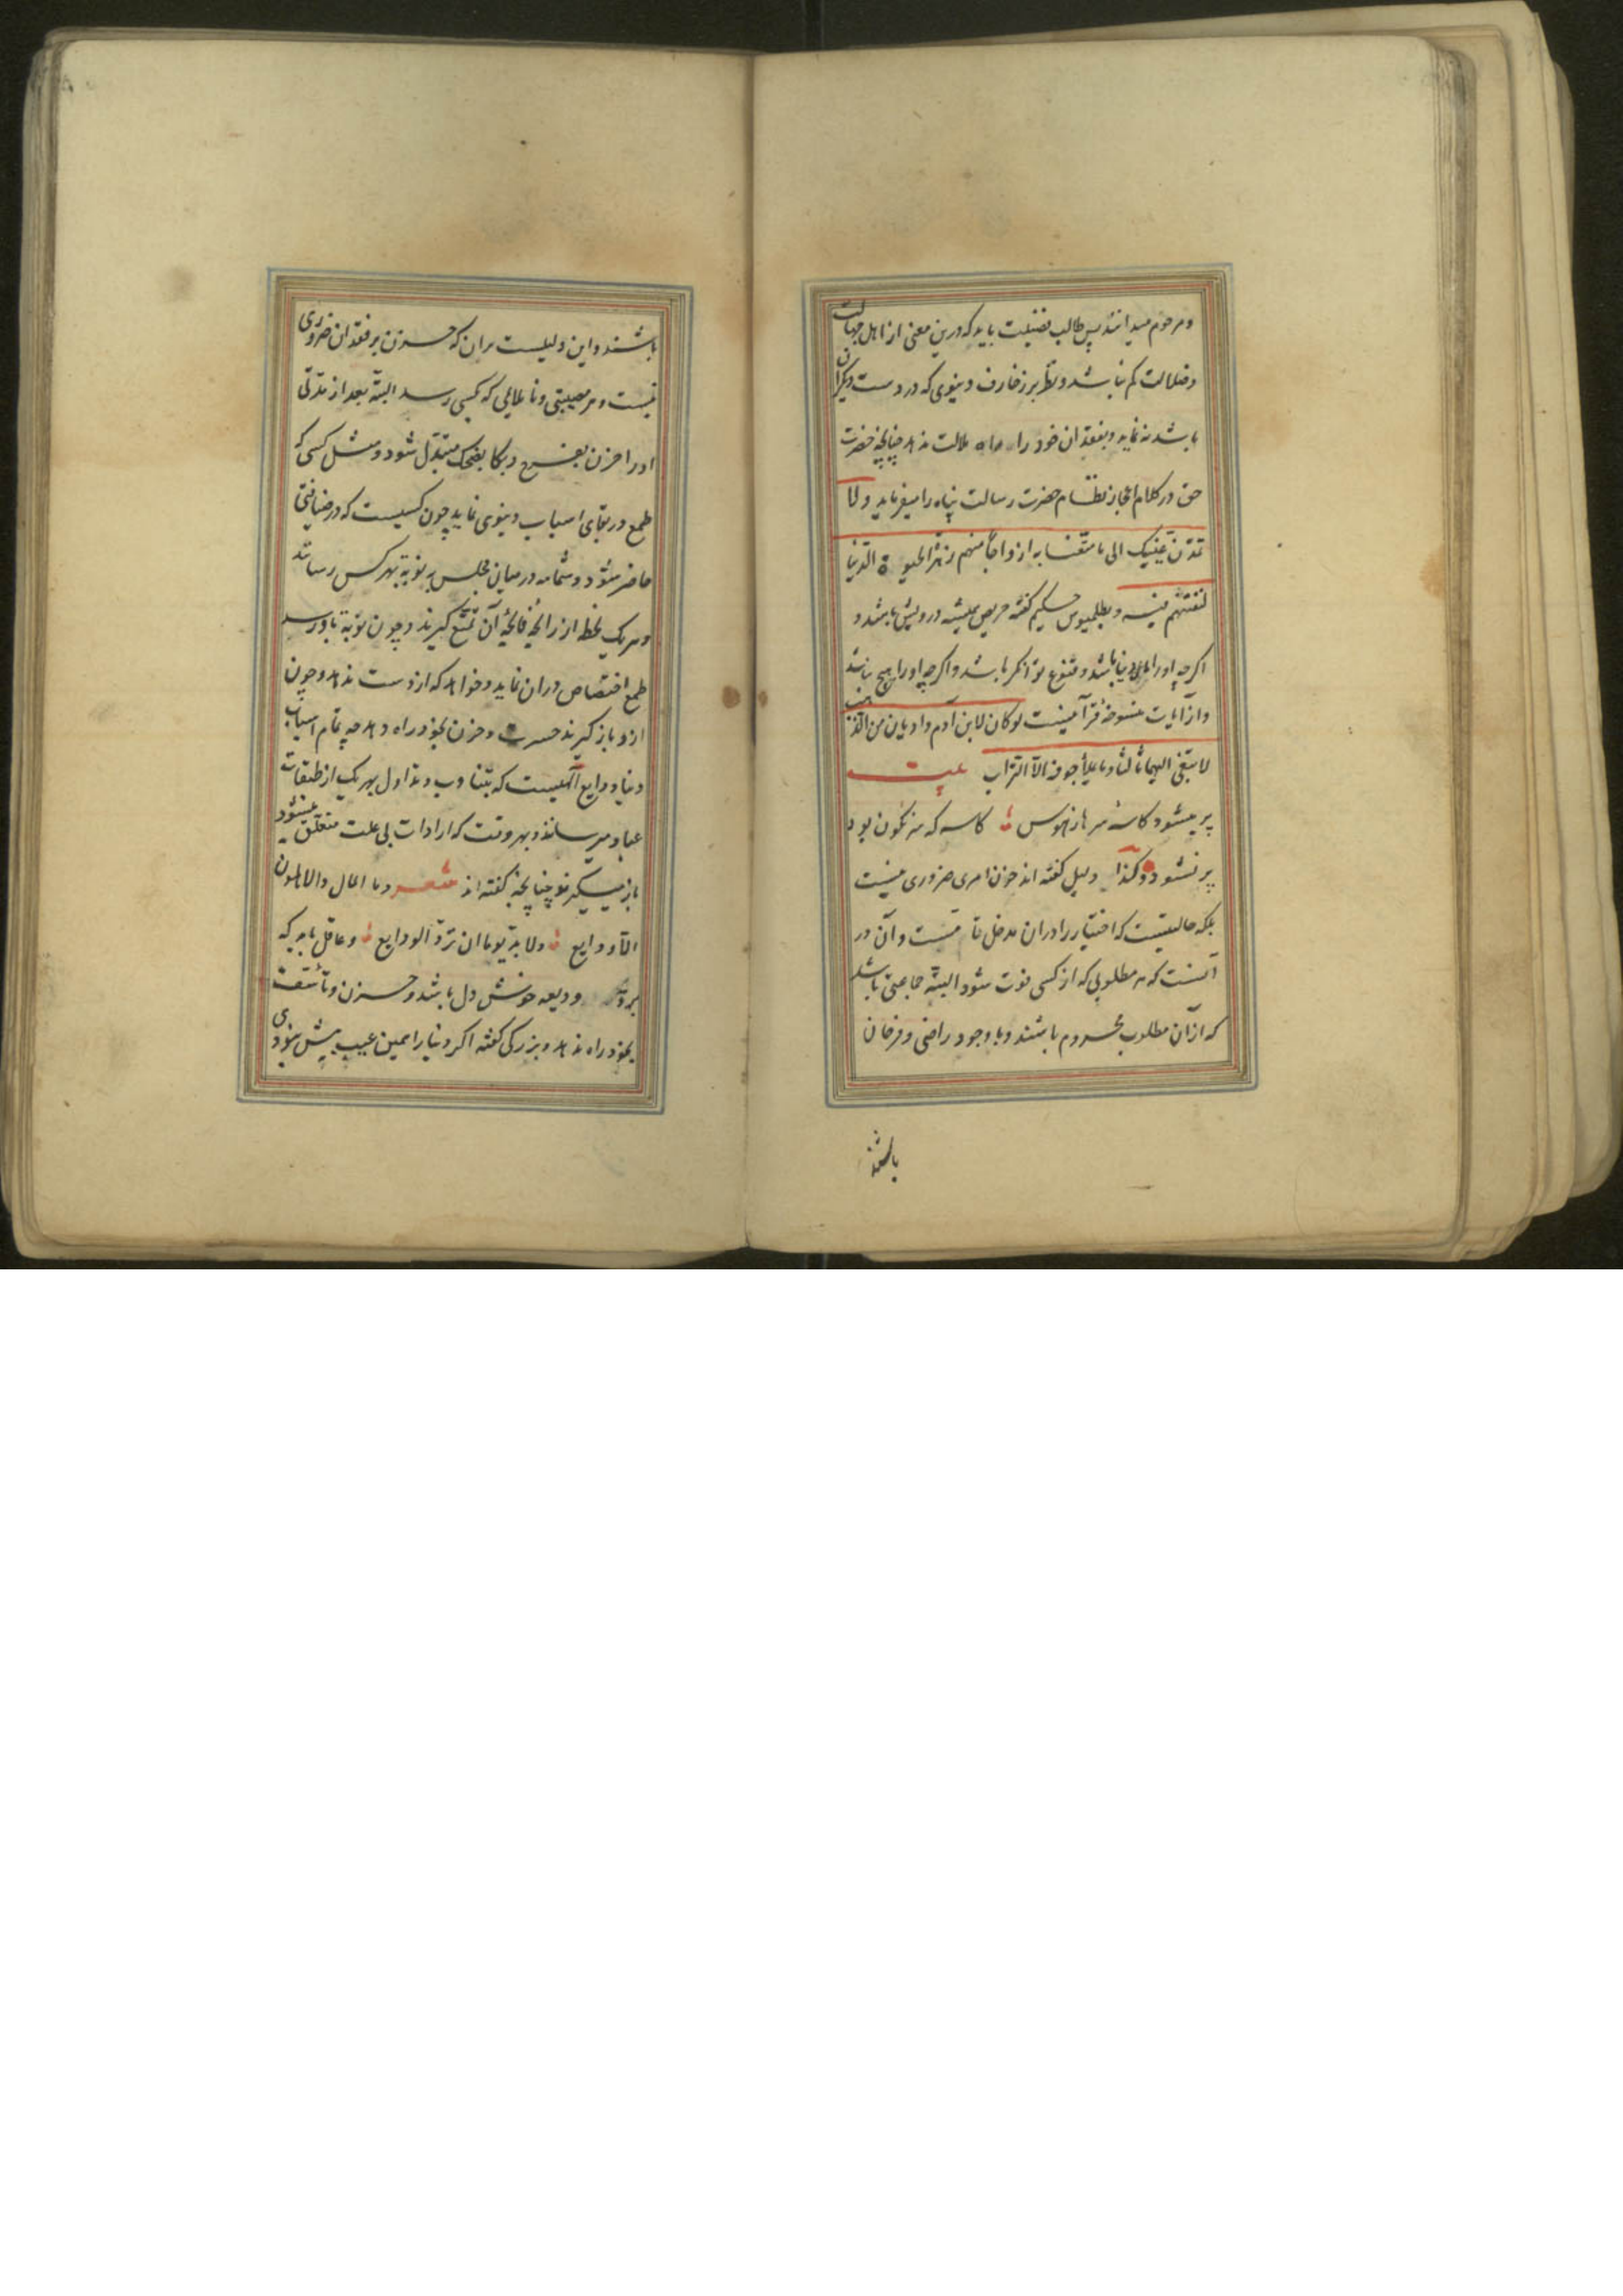 و مرحوم میدانند پس طالب فضیلت باید که درین معنی از اهل جهالت
و ضلالت کم نباشد و نظر بر زخارف دنیوی که در دست دیگران
باشد نه نماید و بفقدان خود را ملالت ندهد چنانچه حضرت
حق در کلام اعجاز نظام حضرت رسالت پناه را میفرماید و لا
تمدن عینیک الی ما متعنا به ازواجا منهم زهرة الحیوة الدنیا
لنفتنهم فیه و بطلمیوس حکیم کفته حریص همیشه درویش باشد و
اکرچه او را دنیا باشد و قنوع توانکر باشد و اکرچه او را هیچ نباشد
و از آیات منسوخهٔ قرآنیست لو کان لابن آدم وادیان من الذهب
لابتغی الیهما ثالثا و ما یملأ جوفه الا التراب بیت
پر میشود کاسهٔ سرها ز هوس کاسه که سرنکون بود
پر نشود و کذا دلیل کفته اند حزن امری ضروری نیست
بلکه حالتیست که اختیار را دران مدخل تامست و آن در
آنست که هر مطلوبی که از کسی فوت شود البته جماعتی باشند
که ازان مطلوب محروم باشند و با وجود راضی و فرحان
باشند
باشند و این دلیلست بران که حزن بر فقدان ضروری
نیست و هر مصیبتی و ناملایمی که بکسی رسد البته بعد از مدتی
او را حزن بفرح و بکا بضحک متبدل شود و مثل کسی که
طمع در بقای اسباب دنیوی نماید چون کسیست که در ضیافتی
حاضر شود و شمامه در میان مجلس به نوبة بهر کس رسانند
و هر یک لحظه از رایحهٔ فایحهٔ آن تمتع کیرند و چون نوبة باو رسد
طمع اختصاص دران نماید و خواهد که از دست ندهد و چون
ازو باز کیرند حسرت و حزن بخود راه دهد چه تمام اسباب
دنیا ودایع الهیست که بتناوب و تداول بهر یک از طبقات
عباد میرساند و بهر وقت که ارادات بی علت متعلق میشود
باز میکیرند چنانچه کفته اند شعر و ما المال و الاهلون
الا ودایع و لا بد یوما ان ترد الودایع و عاقل باید که
برد ودیعه خوش دل باشد و حزن و تأسف
بخود راه ندهد و بزرکی کفته اکر دنیا را همین عیب بیش نبودی